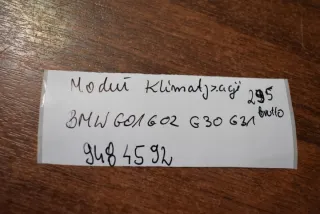 Moduł Klimatyzacji 295 brutto
BMW G01 G02 G30 G31
9484592